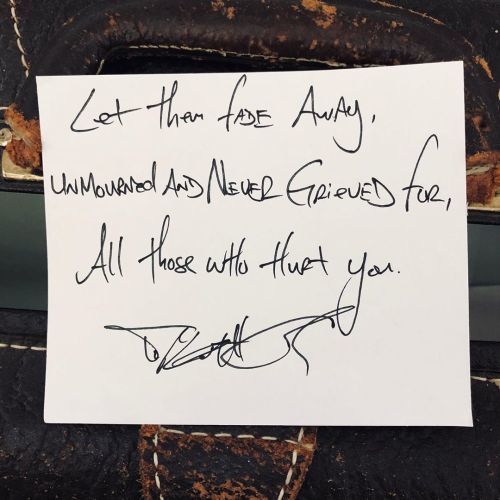 Let them fade Away,
unmourned and Never Grieved for,
All those who Hurt you.